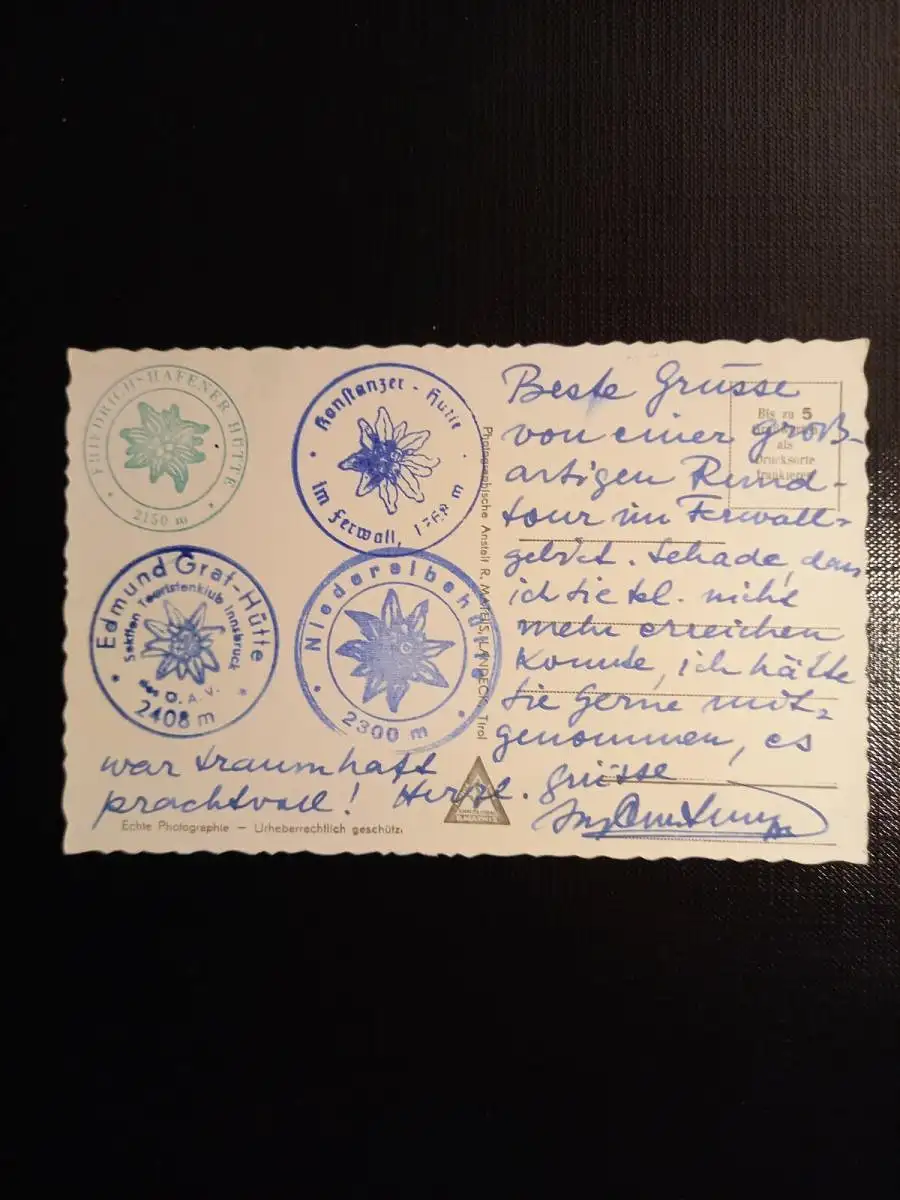 FRIEDRICHSHAFENER HÜTTE
2150 m
Konstanzer-Hütte
im Ferwall, 1768 m
Edmund Graf-Hütte
Sektion Touristenklub Innsbruck
des Ö.A.V.
2408 m
Niederelbehütte
2300 m
Photographische Anstalt R. MATHIS, LANDECK, Tirol
Bis zu 5
als
Drucksorte
frankieren
Beste Grüsse
von einer groß-
artigen Rund-
tour im Ferwall-
gebiet. Schade, dass
ich sie tel. nicht
mehr erreichen
konnte, ich hätte
sie gerne mit-
genommen, es
war traumhaft
prachtvoll! Herzl. grüsse
Echte Photographie — Urheberrechtlich geschützt
R. MATHIS